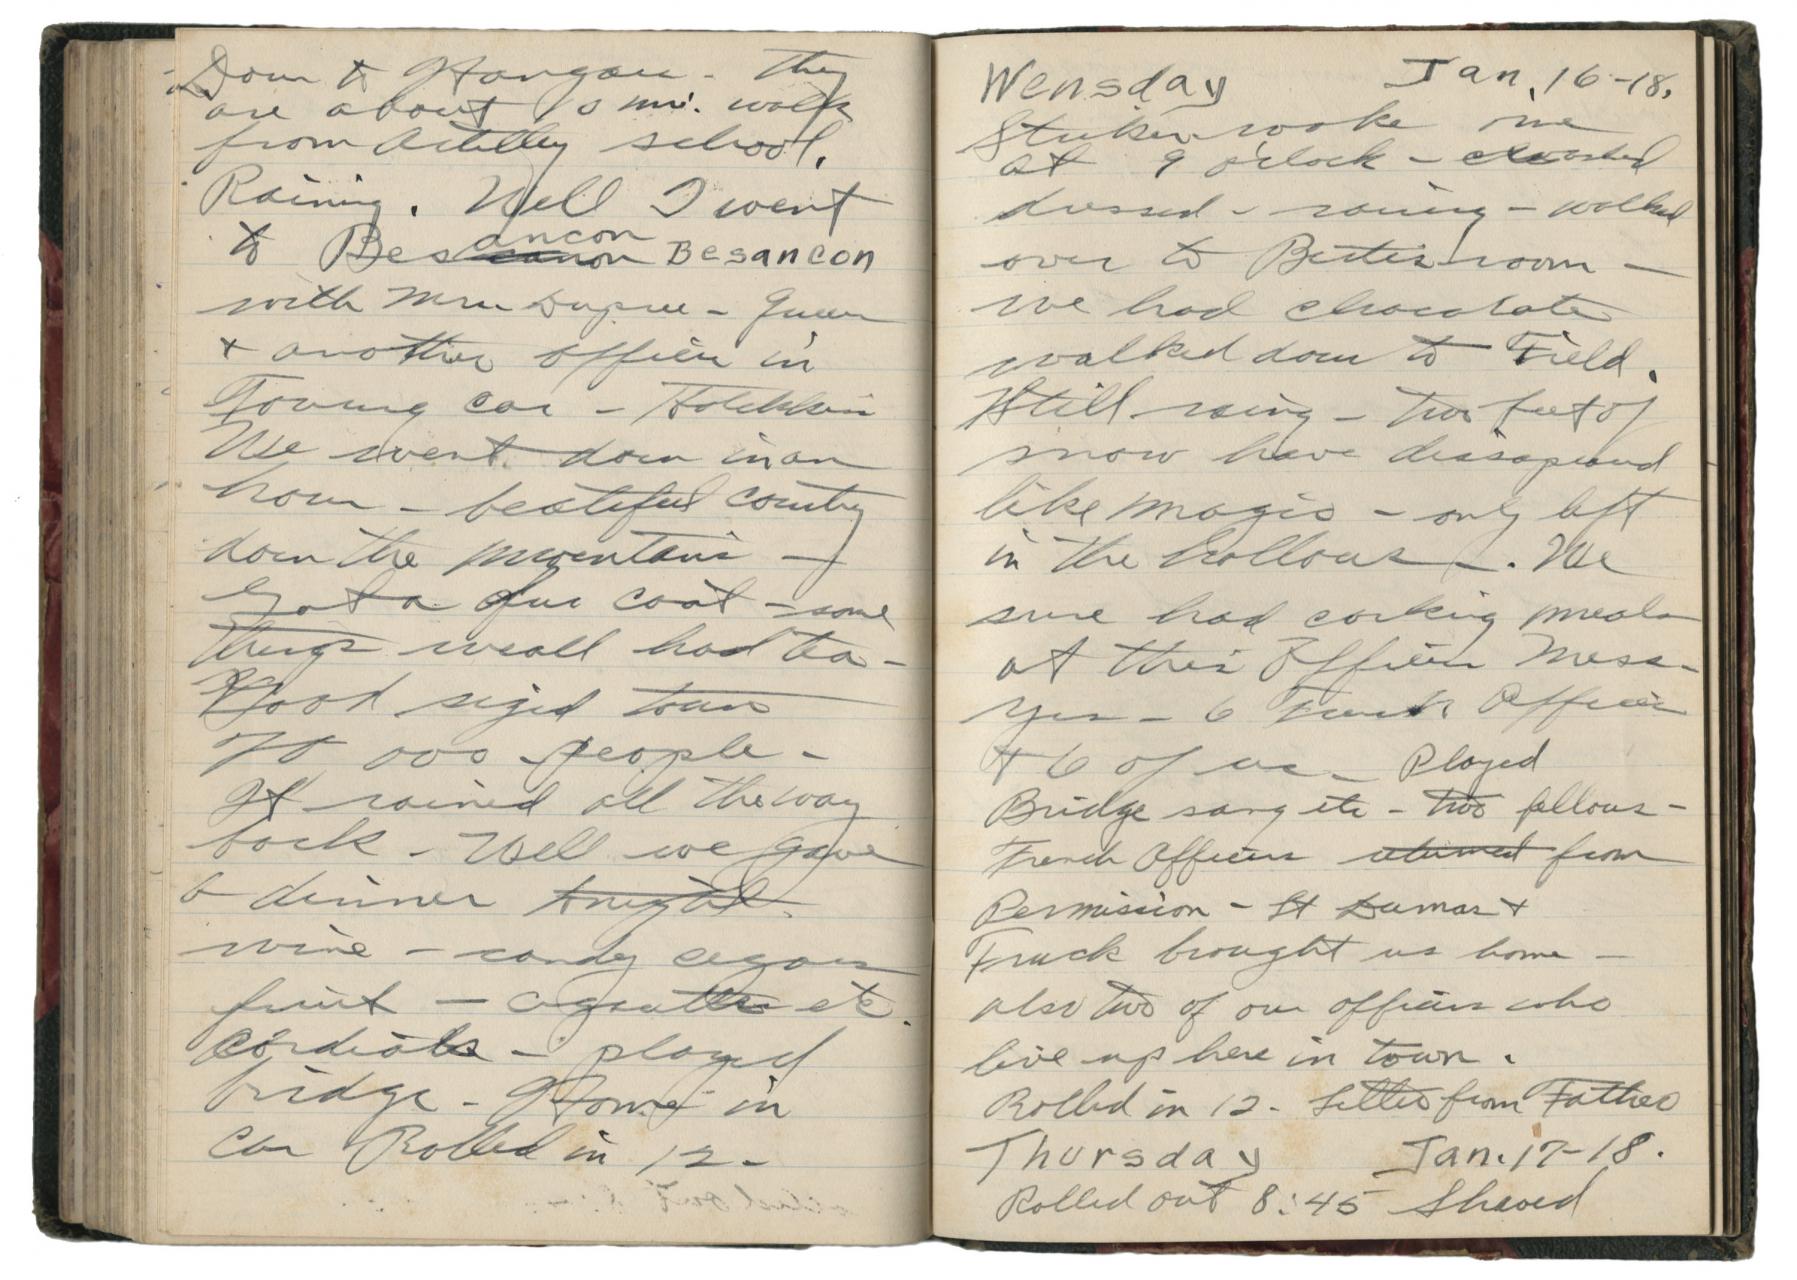 Down to Hangau - they
are about 10 mi. walk
from Artillery school.
Raining. Well I went
to Besancon Besancon
with Dupree -
& another officer in
Touring car - Hotchkiss
We went down in an
hour - beatiful country
down the mountains -
Got a fur coat - some
things we all had tea -
Good sized town
70 000 people -
It rained all the way
back - Well we gave
a dinner tonight
wine - candy cigars
fruit - cigarettes etc.
Cordials - played
bridge - Home in
car Rolled in 12 -
Wensday Jan. 16-18.
Striker woke me
at 9 o'clock - washed
dressed - raining - walked
over to room -
we had chocolate
walked down to Field.
Still raing - two feet of
snow have dissapeared
like magic - only left
in the hollows -. We
sure had corking meals
at this Officers Mess -
Yes - 6 French Officers
& 6 of us - Played
Bridge sang etc - two fellows -
French Officers returned from
Permission - St Dumas &
Truck brought us home -
also two of our officers who
live up here in town.
Rolled in 12 - Letter from Father
Thursday Jan. 17-18.
Rolled out 8:45 Shaved